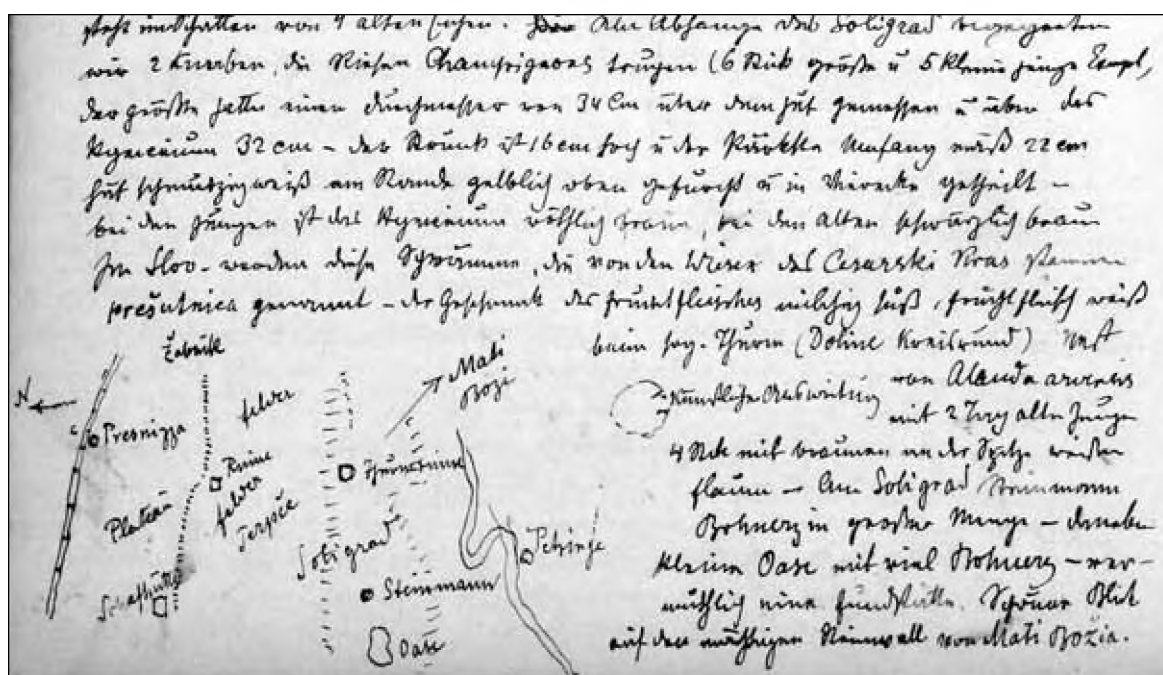 steht im Schatten von 4 alten Eichen. Am Abhange des Soligrad begegneten
wir 2 Knaben, die Riesen Champignons trugen (6 Stück große u 5 kleine junge Exempl,
der größte hatte einen Durchmesser von 34 Cm über dem Hut gemessen u über das
Hymenium 32 cm – der Strunk ist 16 cm hoch u der stärkste Umfang maß 22 cm
Hut schmutzigweiß am Rande gelblich oben gefurcht u in Vierecke getheilt –
bei den Jungen ist das Hymenium röthlich braun, bei den Alten schwärzlich braun
Im Slov. werden diese Schwämme, die von den Wiesen des Cesarski Kras stammen
prešutnica genannt – der Geschmack des Fruchtfleisches milchig süß, Fruchtfleisch weiß
beim sog. Thurm (Doline Kreisrund) Nest
von Alauda arvensis
mit 2 Tag alten Jungen
4 Stck mit braunen an der Spitze weißen
Flaum – Am Soligrad Steinmann
Bohnerz in großer Menge – daneben
kleine Oase mit viel Bohnerz – ver-
muthlich eine Fundstätte. Schöner Blick
auf den mächtigen Steinwall von Mati Božia.
künstliche Ausweitung
N
Presnizza
Plateau
Schafhütte
Ruine
felder
felder
Terpie
Soligrad
Thurmruine
Steinmann
Oase
Mati
Božj
Petrinje